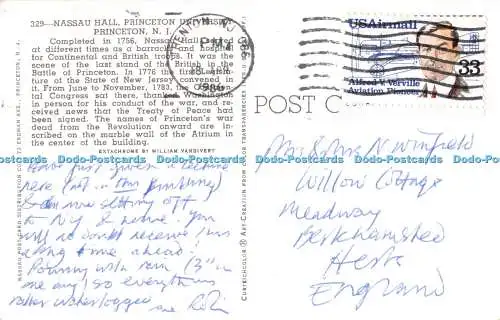 329—NASSAU HALL, PRINCETON UNIVERSITY
PRINCETON, N. J.
Completed in 1756, Nassau Hall served
at different times as a barracks and hospital
for Continental and British troops. It was the
scene of the last stand of the British in the
Battle of Princeton. In 1776 the first Legisla-
ture of the State of New Jersey convened in
it. From June to November, 1783, the Continen-
tal Congress sat there, thanked Washington
in person for his conduct of the war, and re-
ceived news that the Treaty of Peace had
been signed. The names of Princeton's war
dead from the Revolution onward are in-
scribed on the marble wall of the Atrium in
the center of the building.
EKTACHROME BY WILLIAM VANDIVERT
Have just given a lecture
here (not in this building)
& am now setting off
to N.Y. & home. You
will no doubt receive this
a long time ahead!
Pouring with rain (3" in
one day) so everything
rather waterlogged
Robin
CURTEICHCOLOR ® ART CREATION FROM COLOR TRANSPARENCIES
POST C
TRENTON NJ
PM
1986
USAirmail
33
Alfred V. Verville
Aviation Pioneer
Mr & Mrs N Winfield
Willow Cottage
Meadway
Berkhamsted
Herts
England
Dodo-Postcards Dodo-Postcards Dodo-Postcards Dodo-Postcards Dodo-Postcards